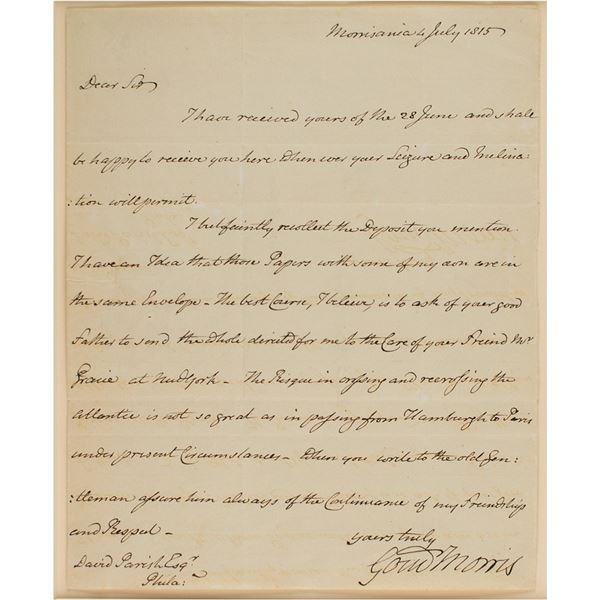 Morrisania 4 July 1815
Dear Sir
I have received yours of the 28 June and shall
be happy to receive you here when ever your Leizure and Inclina:
:tion will permit.
I but faintly recollect the Deposit you mention.
I have an Idea that those Papers with some of my own are in
the same Envelope – The best Course, I believe, is to ask of your good
Father to send the whole directed for me to the Care of your Friend Mr
Gracie at New York – The Risque in crossing and recrossing the
Atlantic is not so great as in passing from Hamburgh to Paris
under present Circumstances – When you write to the old Gen:
:tleman assure him always of the Continuance of my Friendship
and Respect –
yours truly
Gouv Morris
David Parish Esqr
Phila: